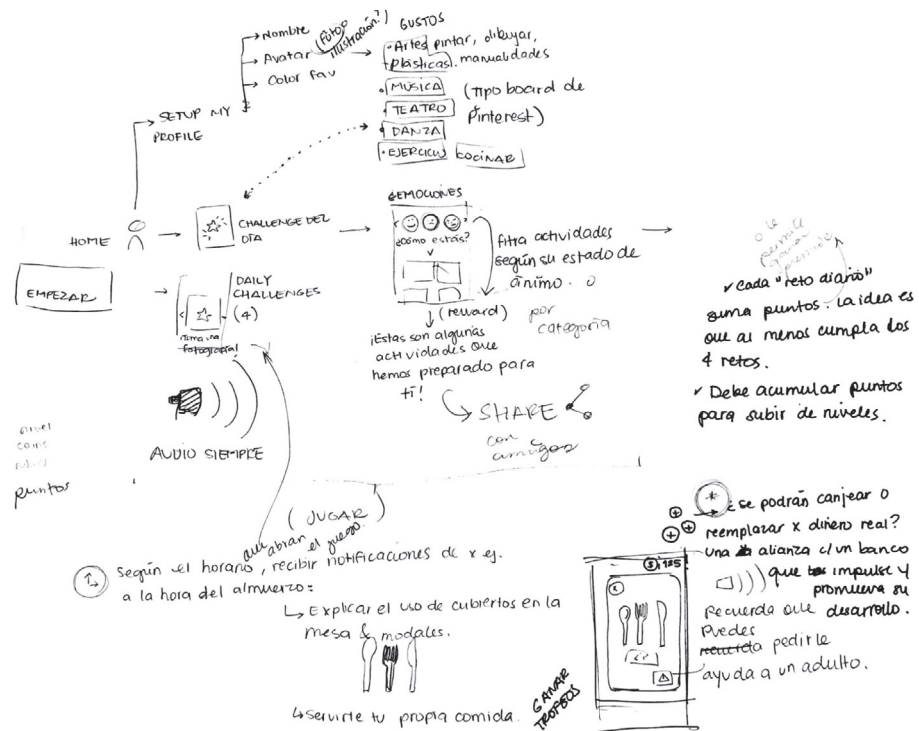 Nombre
Avatar (foto o ilustración?)
Color fav
SETUP MY
PROFILE
GUSTOS
• Artes pintar, dibujar,
plásticas. manualidades
• MÚSICA
• TEATRO
• DANZA
• EJERCICIO COCINAR
(Tipo board de
Pinterest)
HOME
EMPEZAR
CHALLENGE DEL
DÍA
DAILY
CHALLENGES
(4)
¡Toma una
fotografía!
AUDIO SIEMPRE
EMOCIONES
¿Cómo estás?
filtra actividades
según su estado de
ánimo. o
por
categoría
(reward)
¡Estas son algunas
actividades que
hemos preparado para
ti!
SHARE
con
amigos
o le
permite
ganar
✓ Cada "reto diario"
suma puntos. La idea es
que al menos cumpla los
4 retos.
✓ Debe acumular puntos
para subir de niveles.
nivel
coins
puntos
(JUGAR)
que abran el juego.
Según el horario, recibir notificaciones de x ej.
a la hora del almuerzo:
Explicar el uso de cubiertos en la
mesa & modales.
Servirte tu propia comida.
GANAR
TROFEOS
$ 125
x
* ¿se podrán canjear o
reemplazar x dinero real?
una alianza c/un banco
que impulse y
promueva su
desarrollo.
Recuerda que
puedes
pedirle
ayuda a un adulto.